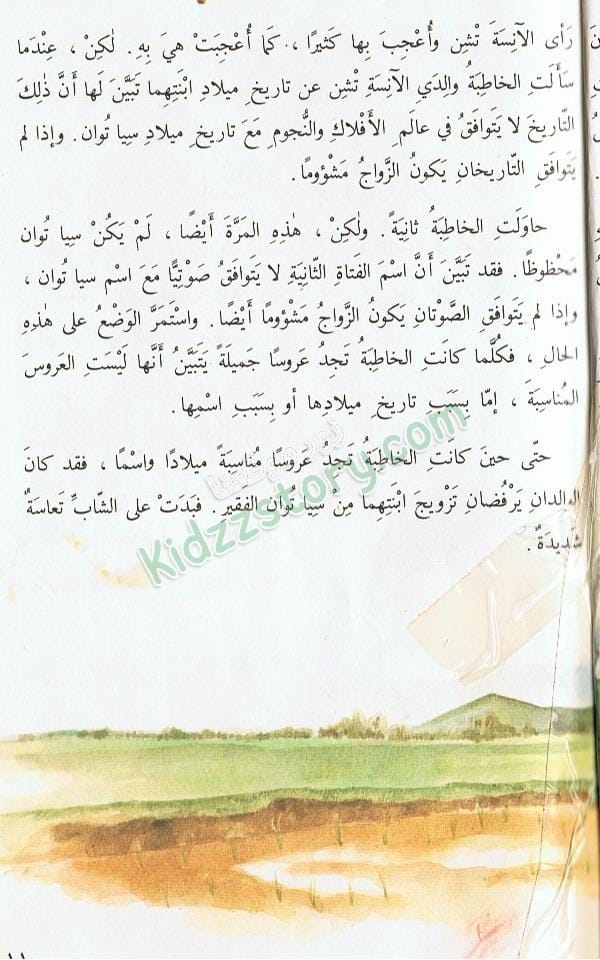 رَأى الآنِسَةَ تْشِن وأُعْجِبَ بِها كَثيرًا ، كَما أُعْجِبَتْ هيَ بِهِ . لٰكِنْ ، عِنْدَما
سَأَلَتِ الخاطِبَةُ والِدَيِ الآنِسَةِ تْشِن عن تاريخِ ميلادِ ابْنَتِهِما تَبَيَّنَ لَها أَنَّ ذٰلِكَ
التّاريخَ لا يَتَوافَقُ في عالَمِ الأَفْلاكِ والنُّجومِ مَعَ تاريخِ ميلادِ سِيا تُوان . وإذا لم
يَتَوافَقِ التّاريخانِ يَكونُ الزَّواجُ مَشْؤومًا .
حاوَلَتِ الخاطِبَةُ ثانِيَةً . ولٰكِنْ ، هٰذِهِ المَرَّةَ أَيْضًا ، لَمْ يَكُنْ سِيا تُوان
مَحْظوظًا . فقد تَبَيَّنَ أَنَّ اسْمَ الفَتاةِ الثّانِيَةِ لا يَتَوافَقُ صَوْتِيًّا مَعَ اسْمِ سيا تُوان ،
وإذا لم يَتَوافَقِ الصَّوْتانِ يَكونُ الزَّواجُ مَشْؤومًا أَيْضًا . واسْتَمَرَّ الوَضْعُ على هٰذِهِ
الحالِ ، فكُلَّما كانَتِ الخاطِبَةُ تَجِدُ عَروسًا جَميلَةً يَتَبَيَّنُ أَنَّها لَيْسَتِ العَروسَ
المُناسِبَةَ ، إمّا بِسَبَبِ تاريخِ ميلادِها أو بِسَبَبِ اسْمِها .
حتّى حينَ كانَتِ الخاطِبَةُ تَجِدُ عَروسًا مُناسِبَةً ميلادًا واسْمًا ، فقد كانَ
الوالدانِ يَرْفُضانِ تَزْويجَ ابْنَتِهِما مِنْ سِيا تُوان الفقيرِ . فبَدَتْ على الشّابِّ تَعاسَةٌ
شَديدَةٌ .
Kidzzstory.com